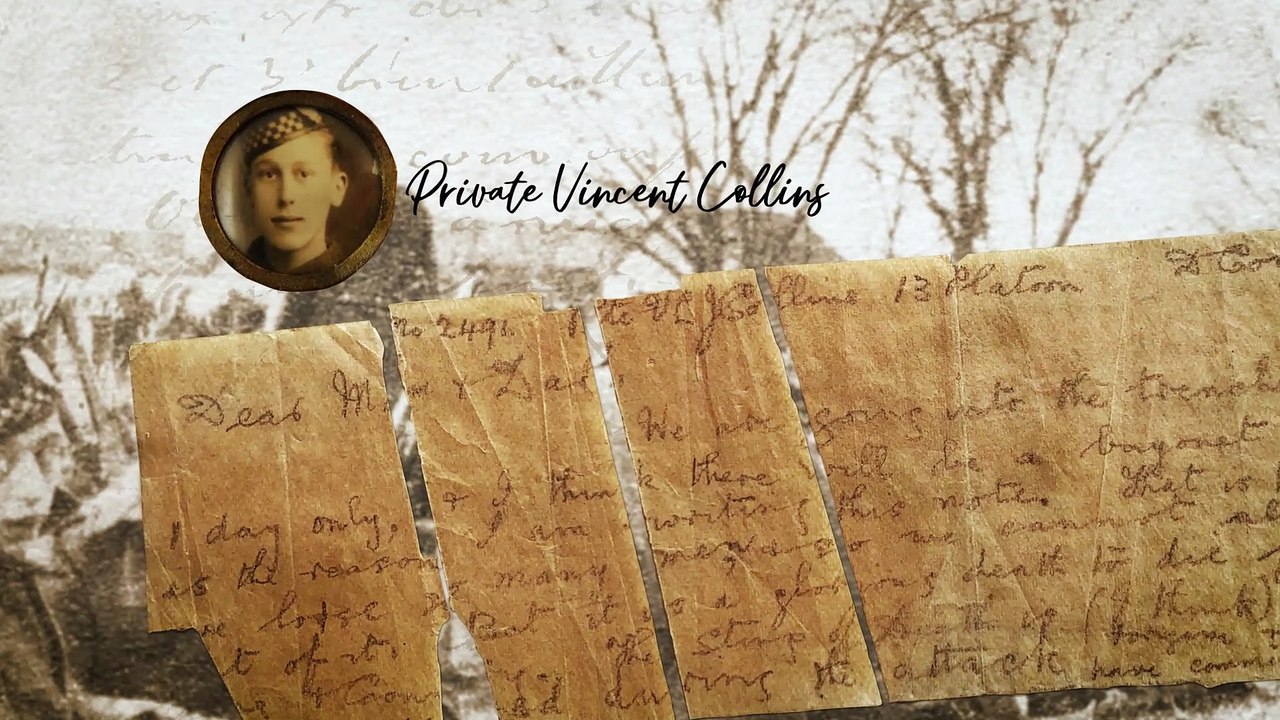 Private Vincent Collins
No 2491. Pte V J Collins 13 Platoon D Co
Dear M & Dad,
We are going into the trench
1 day only, & I think there will be a bayonet
I am writing this note. That is
is the reason many so we cannot al
we lose But it is a glorious death to die
t of it. The Sting of death if (I think)
& Coun ed during the attack have commi